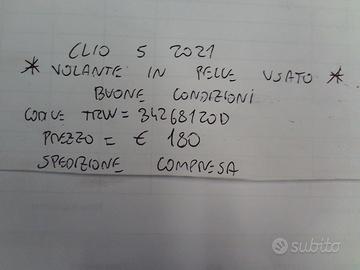 CLIO 5 2021
* VOLANTE IN PELLE USATO *
BUONE CONDIZIONI
CODICE TRW = 34268120D
PREZZO = € 180
SPEDIZIONE COMPRESA
subito